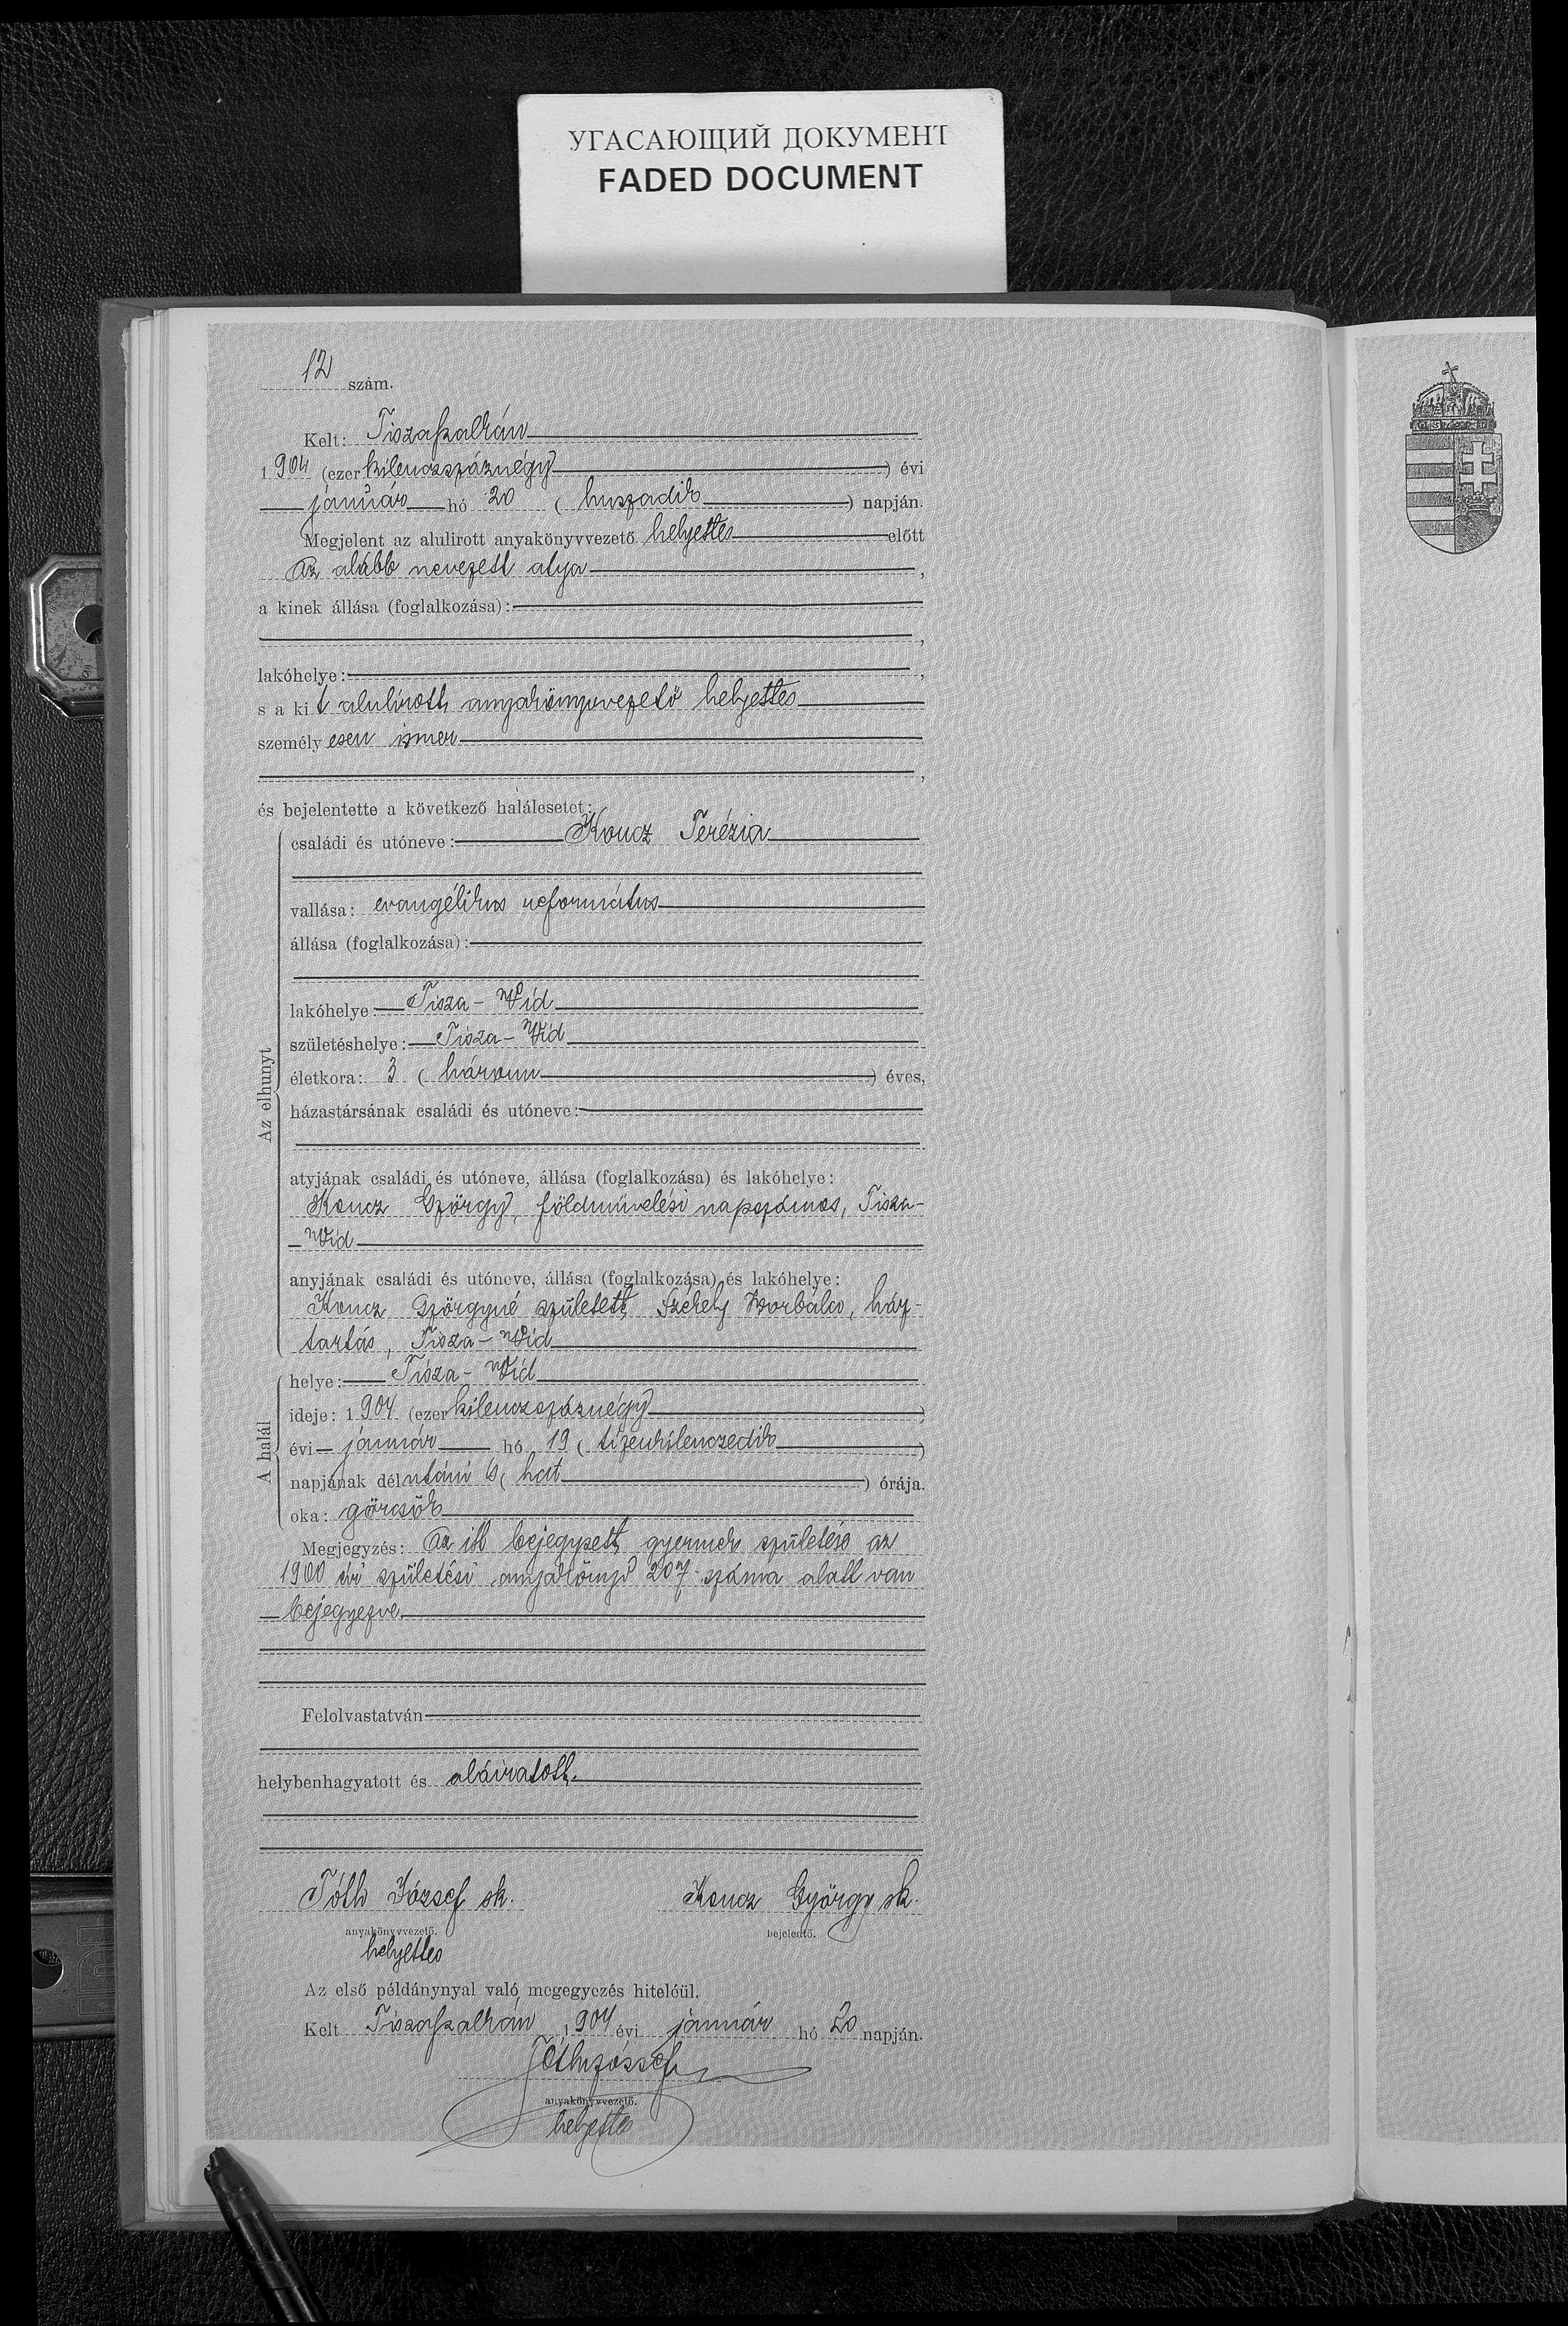 УГАСАЮЩИЙ ДОКУМЕНТ
FADED DOCUMENT
12 szám.
Kelt: Tiszaszalkán
1904 (ezer kilenczszáznégy) évi
január hó 20 (huszadik) napján.
Megjelent az alulirott anyakönyvvezető helyettes előtt
az alább nevezett atya,
a kinek állása (foglalkozása):
,
lakóhelye: ,
s a kit alulírott anyakönyvvezető helyettes
személyesen ismer
,
és bejelentette a következő halálesetet:
Az elhunyt
családi és utóneve: Koncz Terézia
vallása: evangélikus református
állása (foglalkozása):
lakóhelye: Tisza-Vid
születéshelye: Tisza-Vid
életkora: 3 (három) éves,
házastársának családi és utóneve:
atyjának családi és utóneve, állása (foglalkozása) és lakóhelye:
Koncz György, földmüvelési napszámos, Tisza-
Vid
anyjának családi és utóneve, állása (foglalkozása) és lakóhelye:
Koncz Györgyné született Székely Borbála, ház-
tartás, Tisza-Vid
A halál
helye: Tisza-Vid
ideje: 1904 (ezer kilenczszáznégy)
évi január hó 19 (tizenkilenczedik)
napjának délutáni 6 (hat) órája.
oka: görcsök
Megjegyzés: Az itt bejegyzett gyermek születése az
1900 évi születési anyakönyv 207 száma alatt van
bejegyezve.
Felolvastatván
helybenhagyatott és aláiratott.
Tóth József sk. Koncz György sk.
anyakönyvvezető. bejelentő.
helyettes
Az első példánynyal való megegyezés hiteléül.
Kelt Tiszaszalkán 1904 évi január hó 20 napján.
Tóth József
anyakönyvvezető.
helyettes